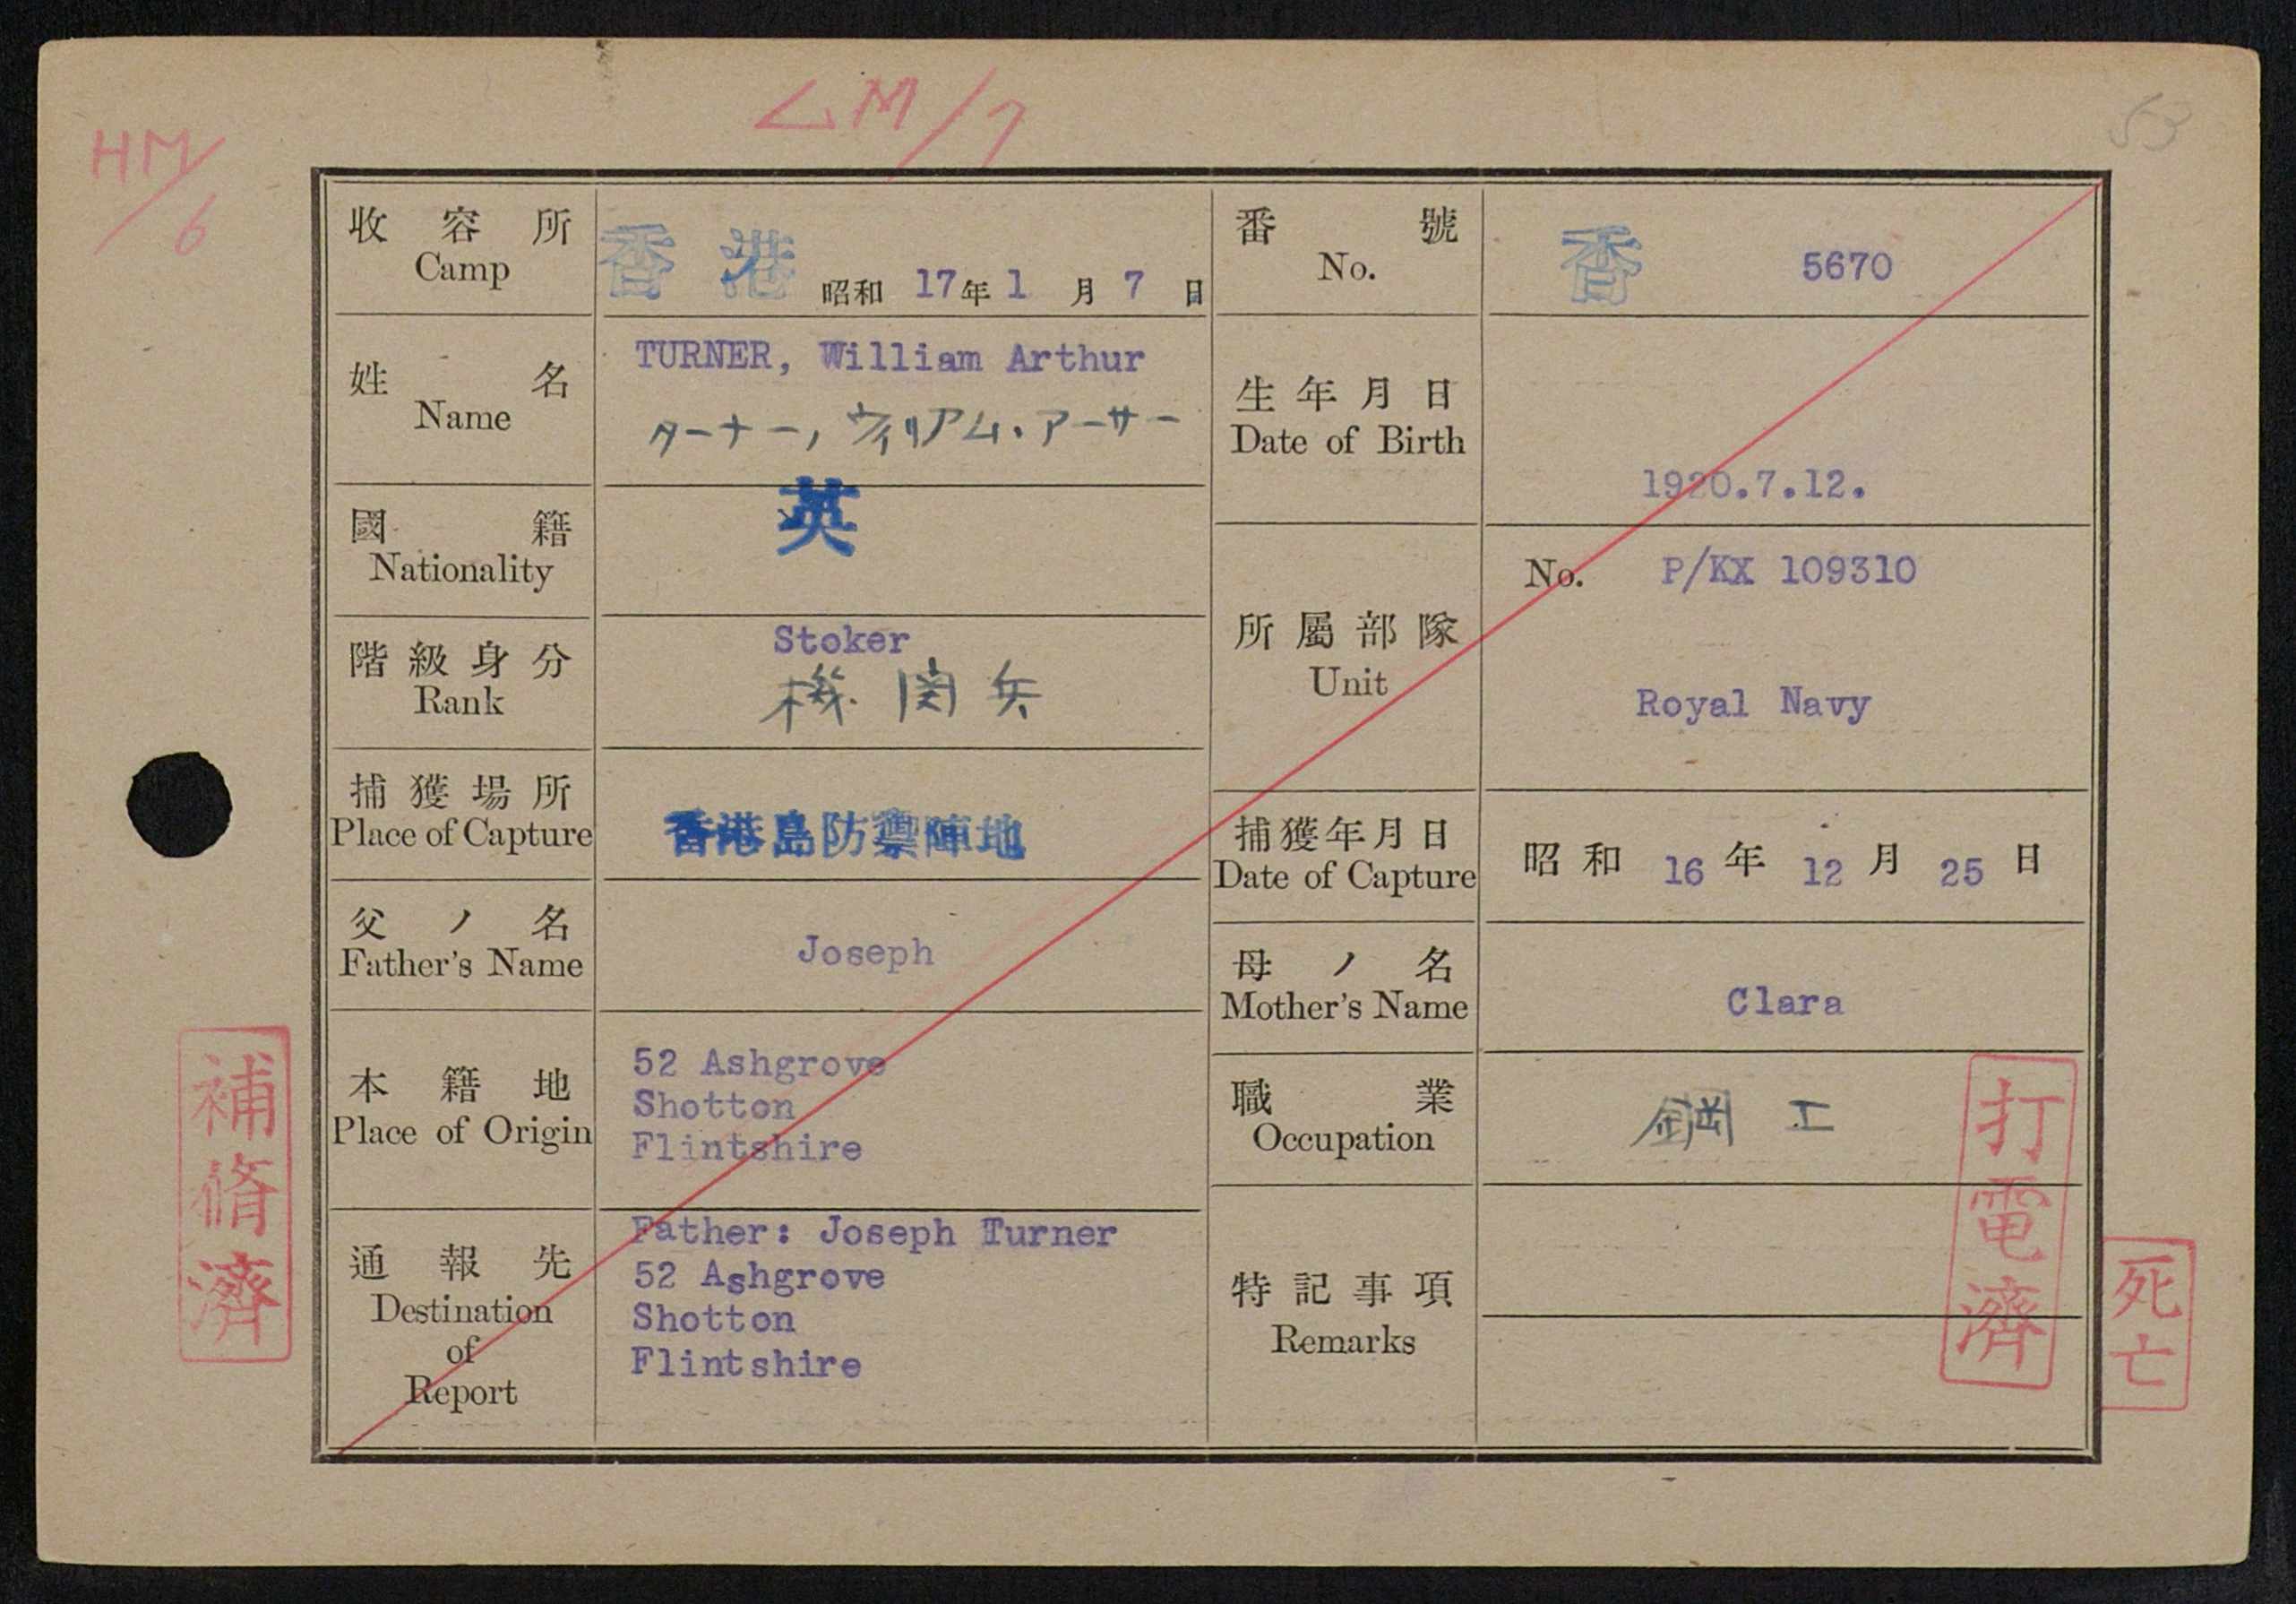 HM/6
LM/7
53
收容所
Camp
香港 昭和 17年 1月 7日
番號
No.
香 5670
姓名
Name
TURNER, William Arthur
ターナー, ウィリアム・アーサー
生年月日
Date of Birth
1920.7.12.
國籍
Nationality
英
階級身分
Rank
Stoker
機関兵
所屬部隊
Unit
No. P/KX 109310
Royal Navy
捕獲場所
Place of Capture
香港島防禦陣地
捕獲年月日
Date of Capture
昭和 16年 12月 25日
父ノ名
Father's Name
Joseph
母ノ名
Mother's Name
Clara
本籍地
Place of Origin
52 Ashgrove
Shotton
Flintshire
職業
Occupation
鋼工
通報先
Destination
of
Report
Father: Joseph Turner
52 Ashgrove
Shotton
Flintshire
特記事項
Remarks
補脩濟
打電濟
死亡